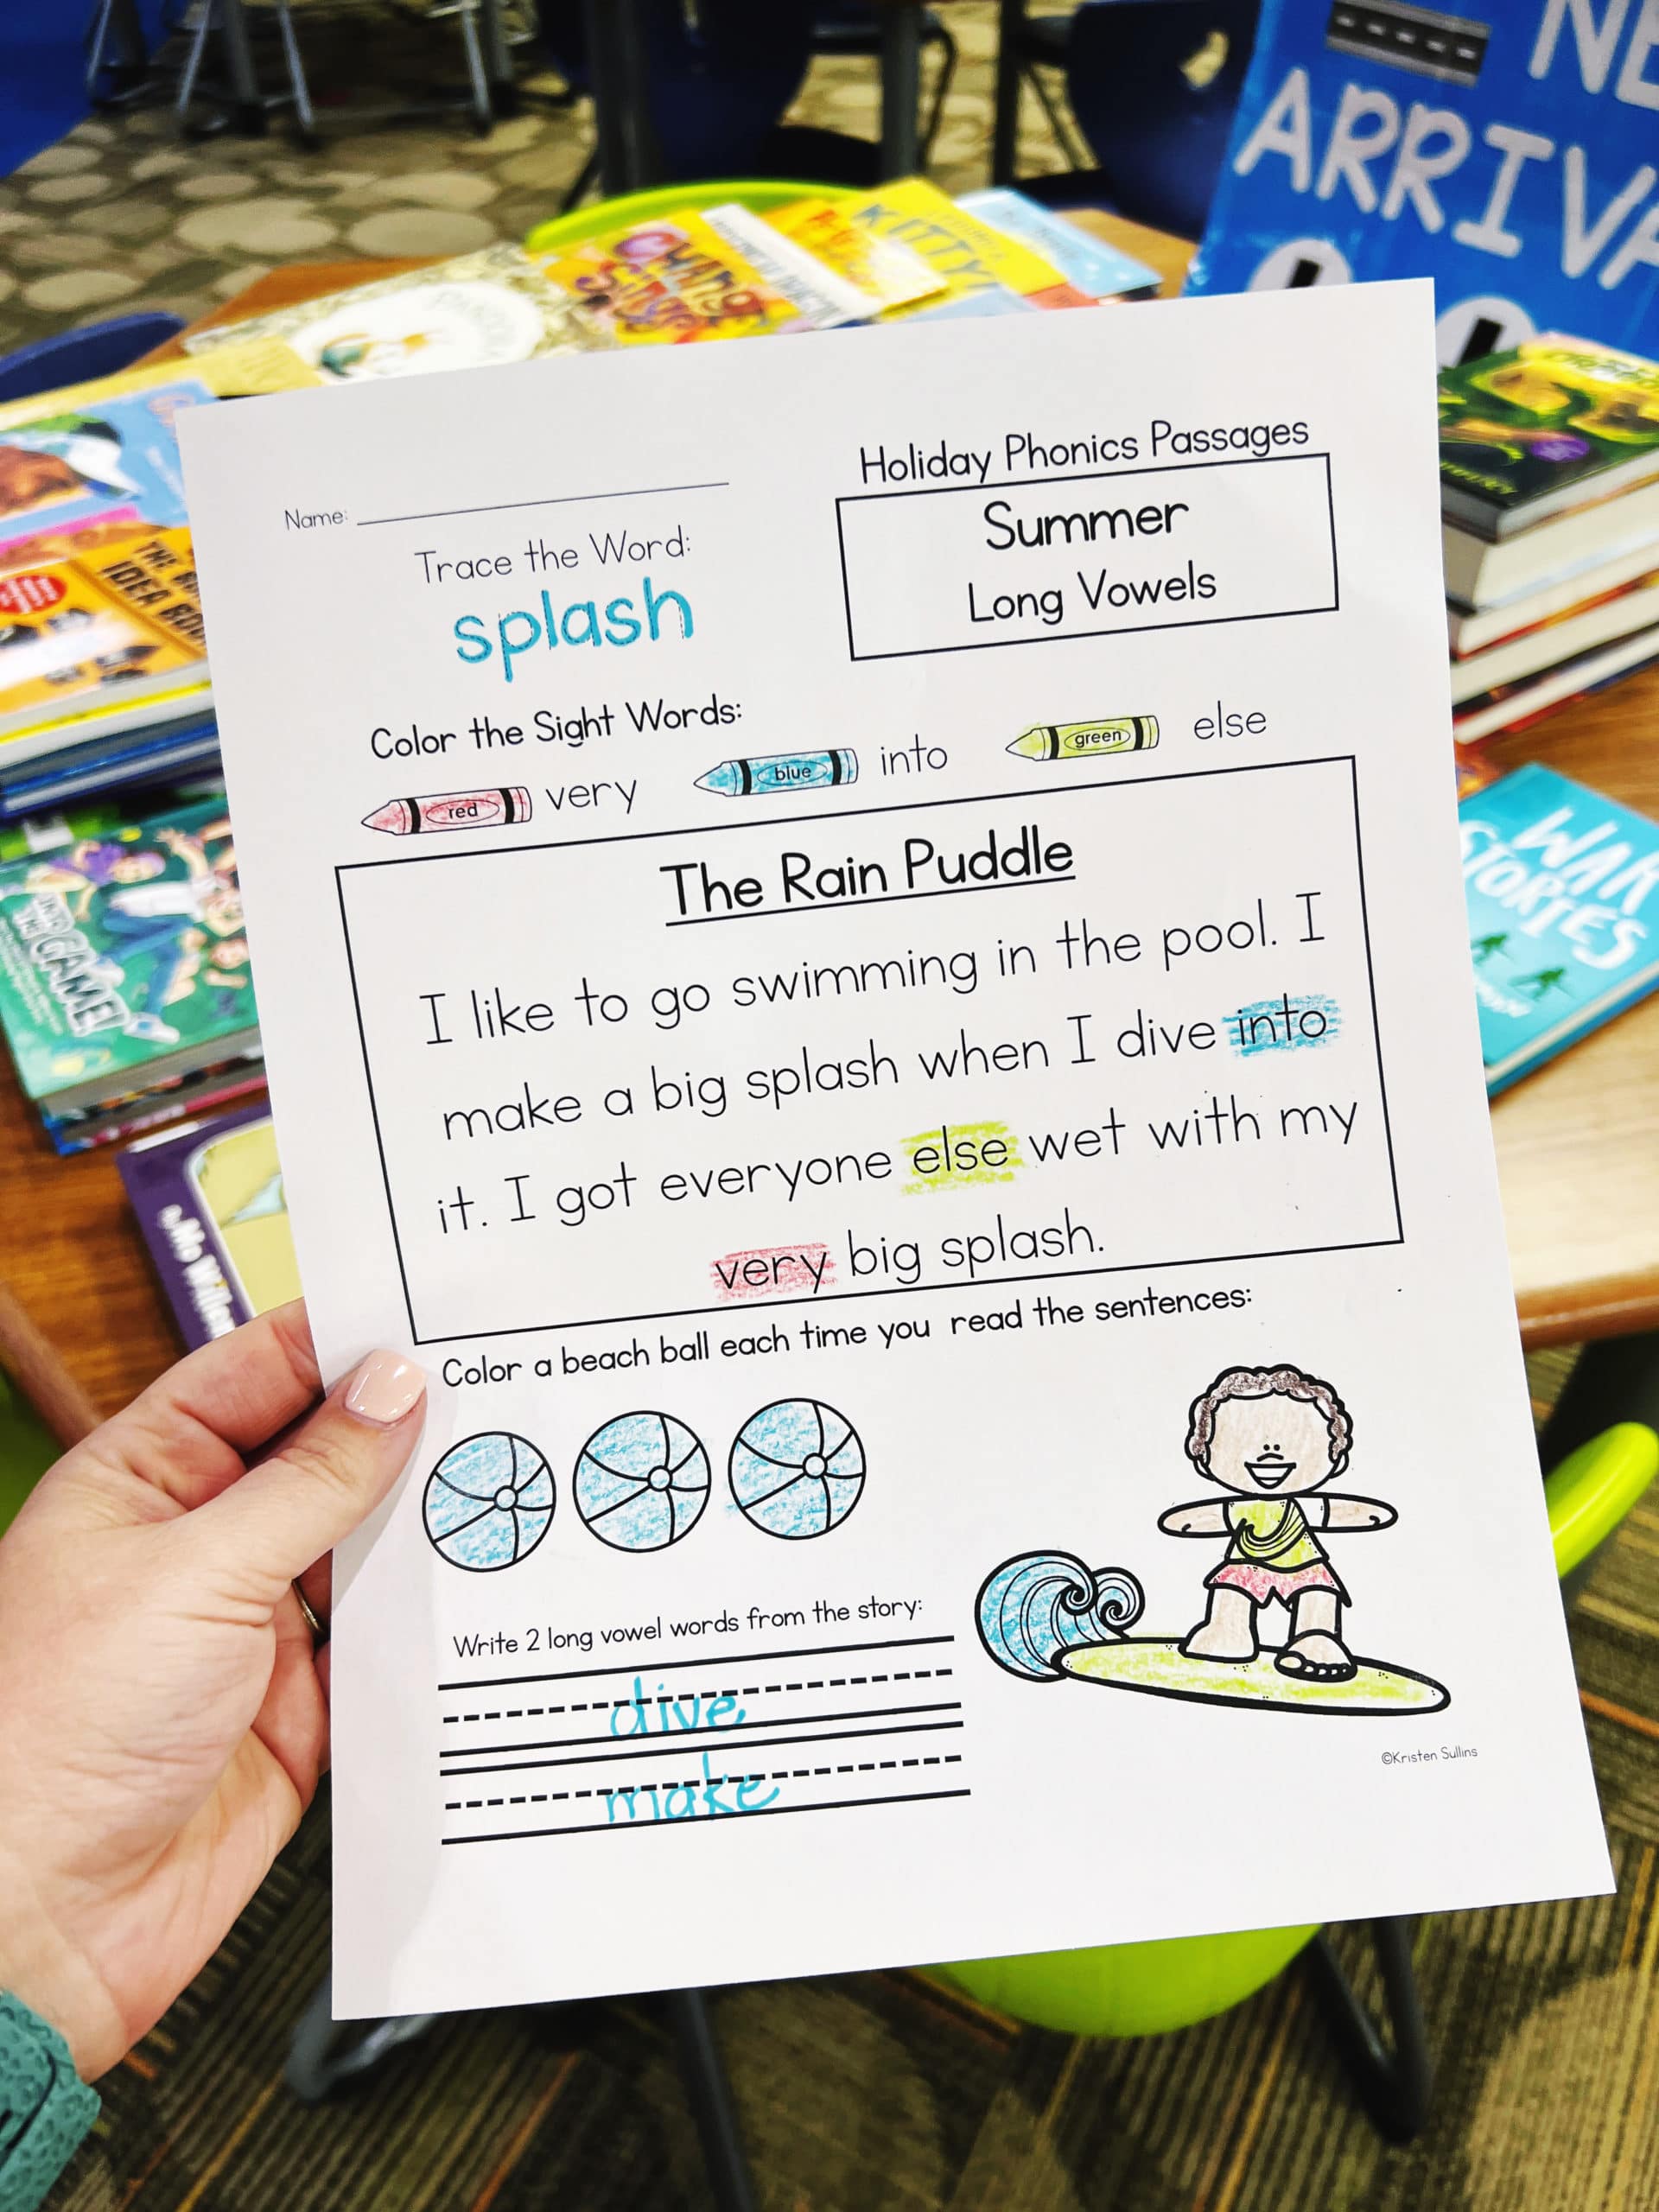 NE
ARRIVA
CHANG
KITTY
THE
IDEA BOO
INTO
GAME!
WAR
STORIES
Holiday Phonics Passages
Summer
Long Vowels
Name:
Trace the Word:
splash
Color the Sight Words:
red very blue into green else
The Rain Puddle
I like to go swimming in the pool. I
make a big splash when I dive into
it. I got everyone else wet with my
very big splash.
Color a beach ball each time you read the sentences:
Write 2 long vowel words from the story:
dive
make
©Kristen Sullins